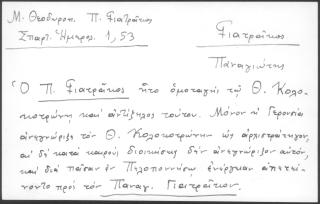 Μ. Θεοδωροπ. Π. Γιατράκος
Σπαρτ. Ἡμερος. 1, 53
Γιατράκος
Παναγιώτης
Ὁ Π. Γιατράκος ἦτο ὁμοταγὴς τῷ Θ. Κολο-
κοτρώνῃ καὶ ἀντίζηλος τούτου. Μόνον ἡ Γερουσία
ἀνεγνώριζε τὸν Θ. Κολοκοτρώνην ὡς ἀρχιστράτηγον,
αἱ δὲ κατὰ καιροὺς διοικήσεις δὲν ἀνεγνώριζον αὐτόν,
καὶ διὰ πᾶσαν ἐν Πελοποννήσῳ ἐνέργειαν ἀπετεί-
νοντο πρὸς τὸν Παναγ. Γιατράκον.